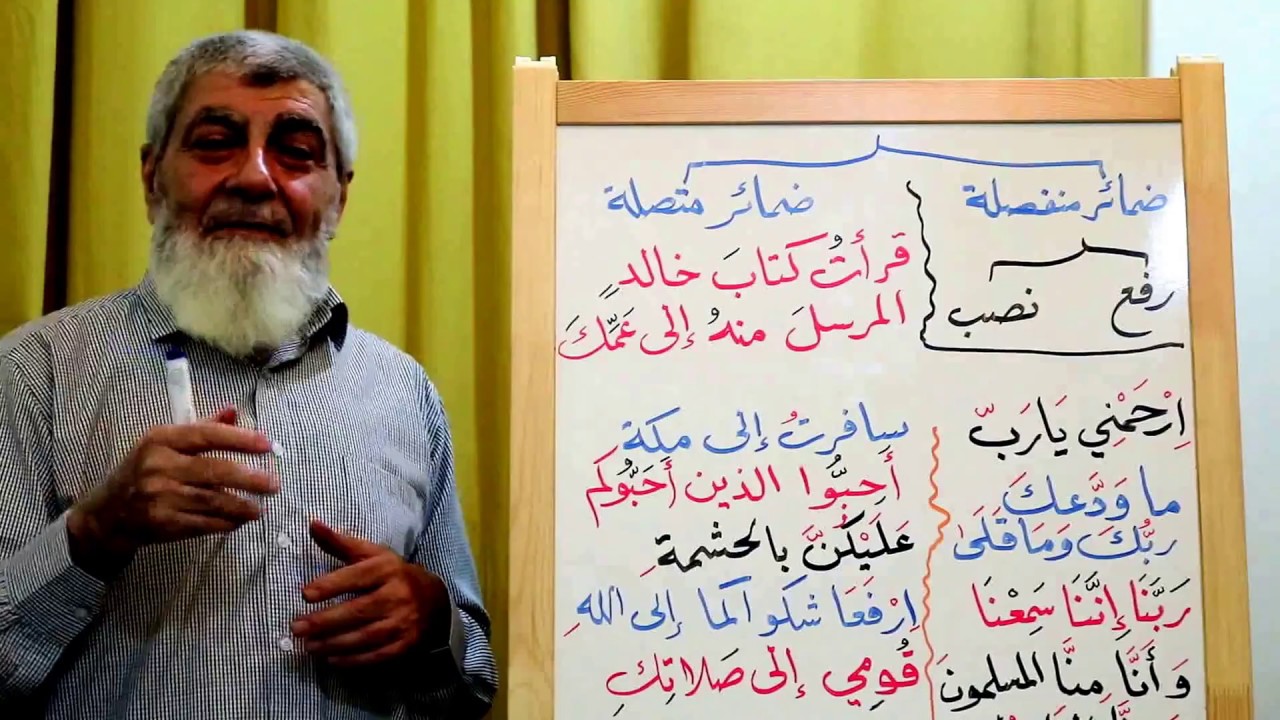 ضمائر منفصلة
رفع نصب
ضمائر متصلة
قرأتُ كتابَ خالدٍ
المرسلَ منهُ إلى عَمِّكَ
اِرْحَمْنِي يَارَبّ
ما وَدَّعكَ
ربُّكَ وَمَا قَلَىٰ
رَبَّنَا إِنَّنَا سَمِعْنَا
وَأَنَّا مِنَّا المسلمونَ
سافرتُ إلى مكةَ
أَحِبُّوا الذين أَحَبُّوكُم
عَلَيْكُنَّ بالحشمةِ
اِرْفَعَا شكواكما إلى اللهِ
قُومِي إلى صَلاتِكِ